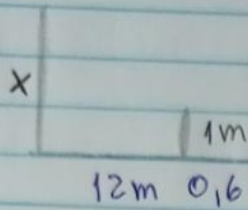 X
1m
12m 0,6